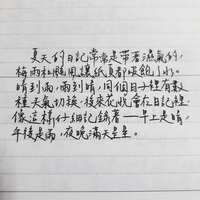 夏天的日記常常是帶著濕氣的,
梅雨和颱風讓紙頁都吸飽了水。
晴到雨,雨到晴,同個日子裡有數
種天氣切換。後來花狀會在日記裡
像這樣仔細記錄著——早上是晴,
午後是雨,夜晚滿天星星。